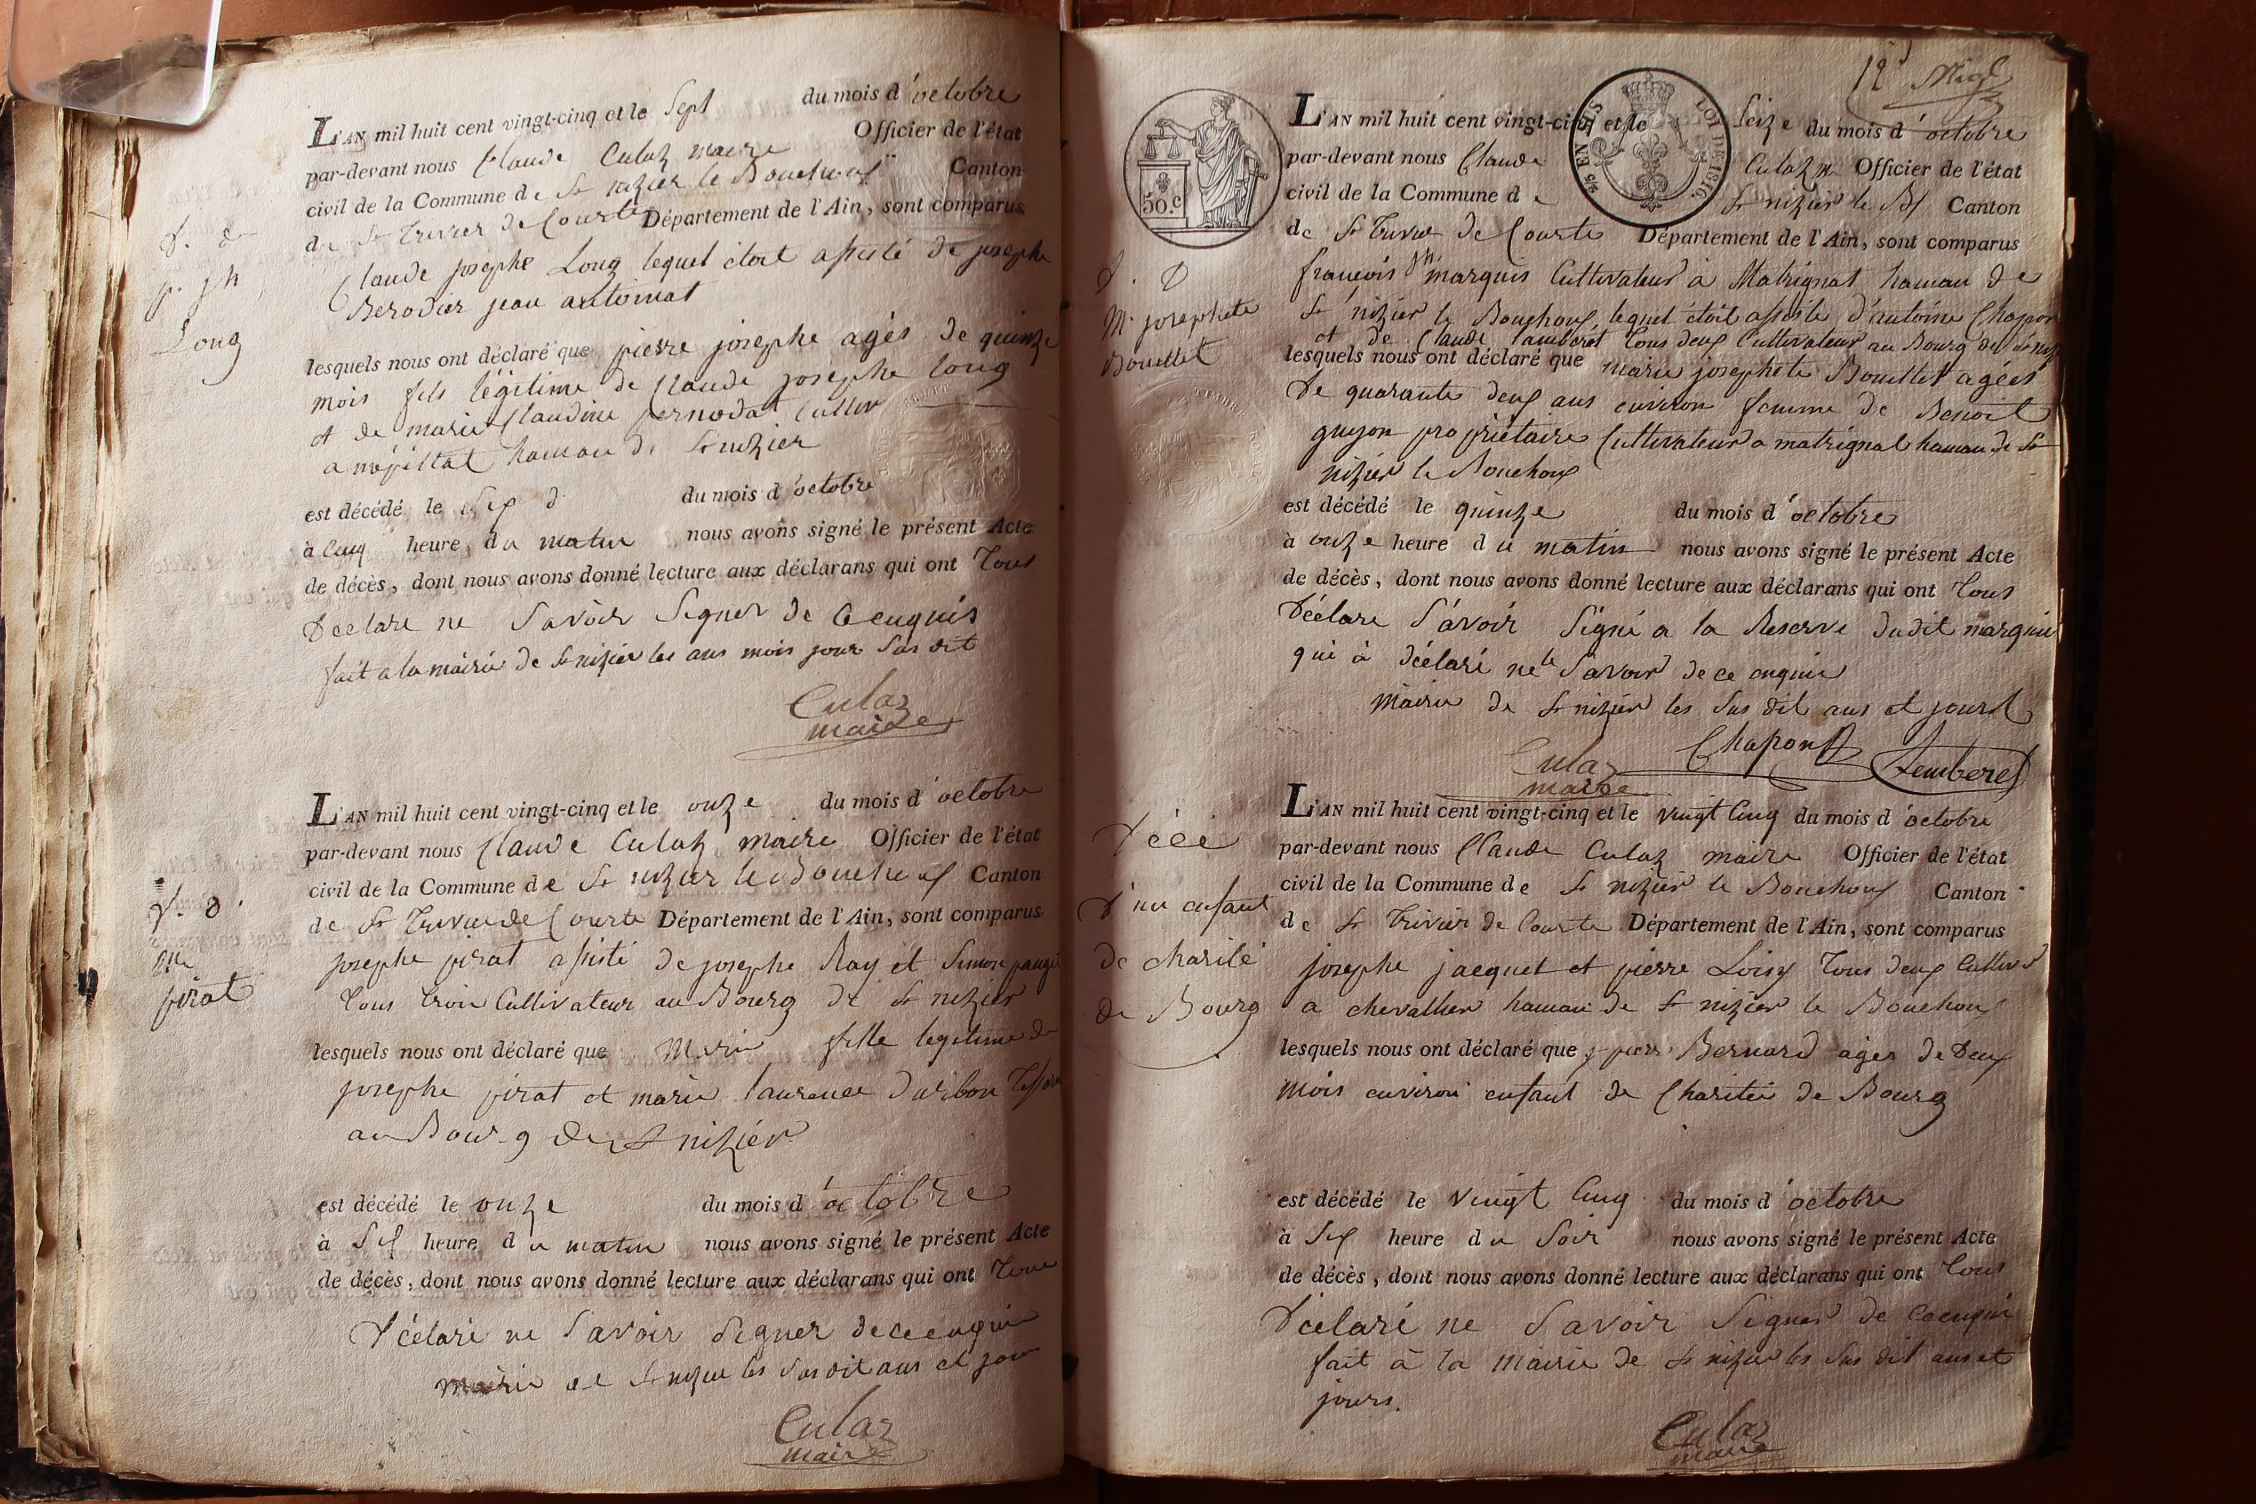 L'AN mil huit cent vingt-cinq et le Sept du mois d'octobre
par-devant nous Claude Culaz maire Officier de l'état
civil de la Commune de St nizier le Bouchoux Canton
de St Trivier de Courte Département de l'Ain, sont comparus
Claude josephe Long lequel étoit assisté de josephe
Berodier jean
lesquels nous ont déclaré que pierre josephe agés de quinze
mois fils légitime de Claude josephe long
et de marie Claudine pernodat Cultiv
a hamau de St nizier
est décédé le Six du mois d'octobre
à Cinq heure du matin nous avons signé le présent Acte
de décès, dont nous avons donné lecture aux déclarans qui ont Tous
Déclare ne Savoir Signer de Ce enquis
fait a la mairie de St nizier les ans mois jour Sus dit
Culaz
maire
D. d
p. jh
Long
L'AN mil huit cent vingt-cinq et le onze du mois d'octobre
par-devant nous Claude Culaz maire Officier de l'état
civil de la Commune de St nizier le Bouchoux Canton
de St Trivier de Courte Département de l'Ain, sont comparus
josephe pirat assisté de josephe Ray et Simon
Tous trois Cultivateur au Bourg de St nizier
lesquels nous ont déclaré que Marie fille legitime de
josephe pirat et marie laurence
au Bourg de St nizier
est décédé le onze du mois d'octobre
à Six heure du matin nous avons signé le présent Acte
de décès, dont nous avons donné lecture aux déclarans qui ont Tous
Déclaré ne Savoir Signer de ce enquis
Mairie de St nizier les Sus dit ans et jour
Culaz
maire
D. d.
Me
pirat
12e
50.c
45 EN SUS
LOI DE 1816.
L'AN mil huit cent vingt-cinq et le Seize du mois d'octobre
par-devant nous Claude Culaz m Officier de l'état
civil de la Commune de St nizier le Bx Canton
de St Trivier de Courte Département de l'Ain, sont comparus
francois jh marquis Cultivateur à Matrignat hamau de
St nizier le Bouchoux, lequel étoit assisté d'antoine Chapon
et de Claude Lamberet Tous deux Cultivateur au Bourg de St nizi
lesquels nous ont déclaré que marie josephete Bouillet agées
De quarante deux ans environ femme de Benoit
guyon propriétaire Cultivateur a matrignat hamau de St
nizier le Bouchoux
est décédé le quinze du mois d'octobre
à onze heure du matin nous avons signé le présent Acte
de décès, dont nous avons donné lecture aux déclarans qui ont Tous
Déclare Savoir Signé a la Reserve dudit marquis
qui à déclaré ne le Savoir de ce enquis
Mairie de St nizier les Sus dit ans et jours
Culaz
maire
Chapon
Lemberet
D. D
Me josephete
Bouillet
L'AN mil huit cent vingt-cinq et le vingt Cinq du mois d'octobre
par-devant nous Claude Culaz maire Officier de l'état
civil de la Commune de St nizier le Bouchoux Canton
de St Trivier de Courte Département de l'Ain, sont comparus
josephe jacquet et pierre Loisy Tous deux Cultivr
a chevallier hamau de St nizier le Bouchoux
lesquels nous ont déclaré que j. pierre Bernard ages de Deux
mois environ enfant de Charitée de Bourg
est décédé le vingt Cinq du mois d'octobre
à Six heure du Soir nous avons signé le présent Acte
de décès, dont nous avons donné lecture aux déclarans qui ont Tous
Déclaré ne Savoir Signer de ce enquis
fait à la mairie de St nizier les Sus dit ans et
jours.
Culaz
maire
Décé
D'un enfant
de charité
de Bourg